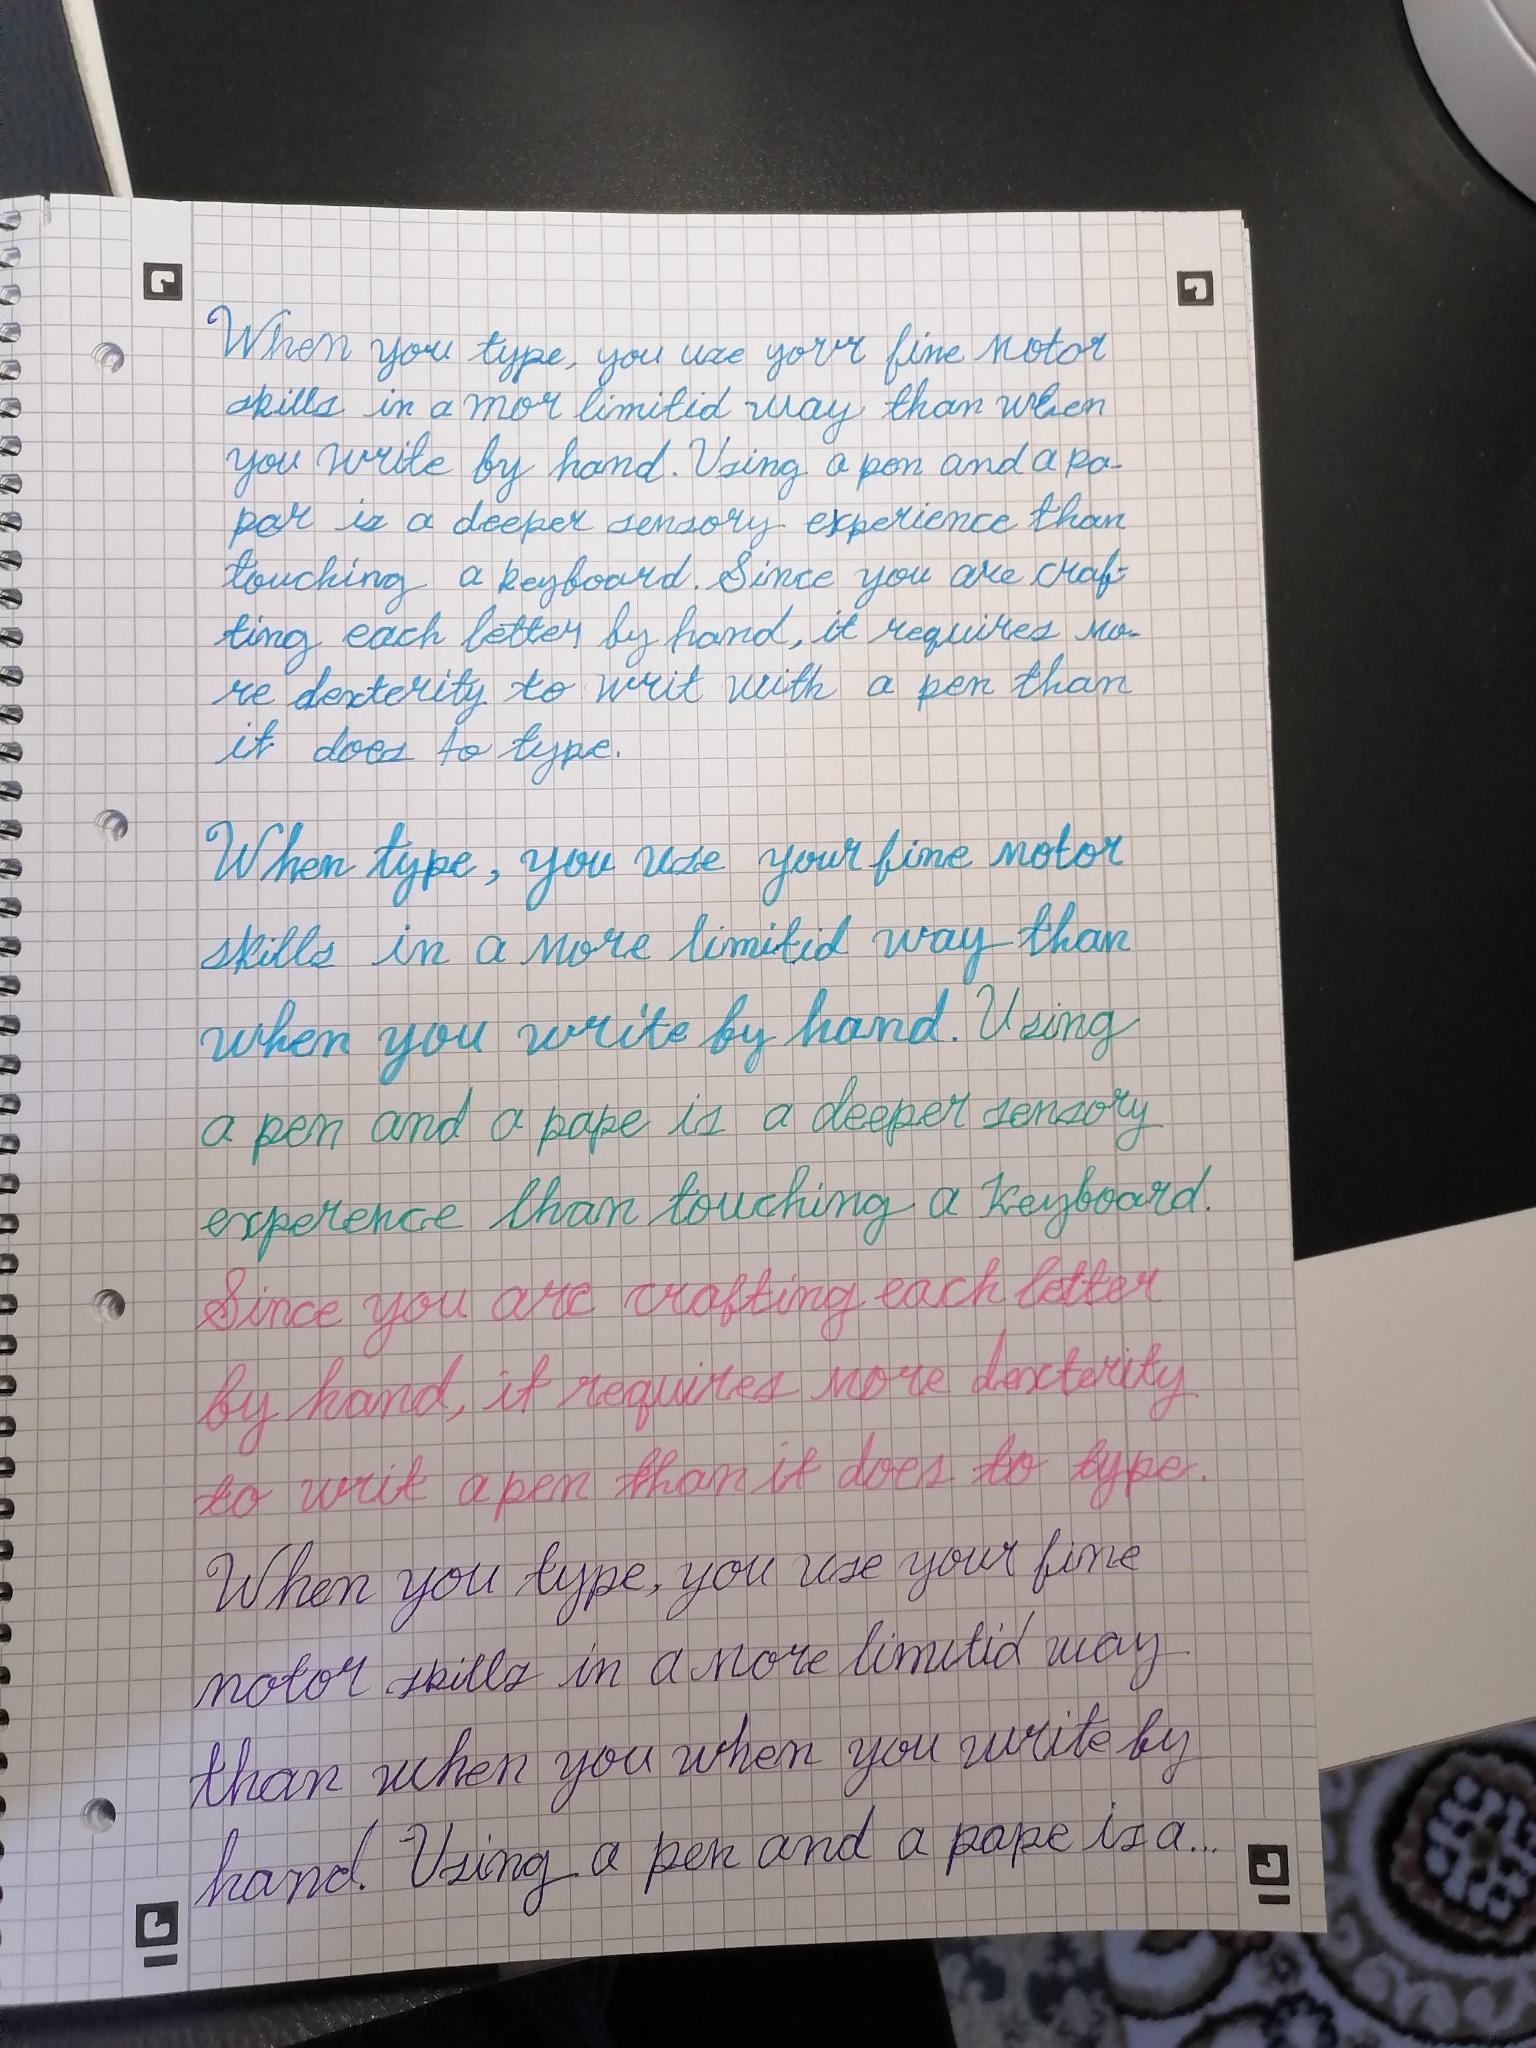 When you type, you use your fine motor
skills in a mor limitid way than when
you write by hand. Using a pen and a pa-
per is a deeper sensory experience than
touching a keyboard. Since you are craf-
ting each letter by hand, it requires mo-
re dexterity to writ with a pen than
it does to type.
When type, you use your fine motor
skills in a more limitid way than
when you write by hand. Using
a pen and a pape is a deeper sensory
experence than touching a keyboard.
Since you are crafting each letter
by hand, it requires more dexterity
to writ a pen than it does to type.
When you type, you use your fine
motor skills in a more limitid way
than when you when you write by
hand. Using a pen and a pape is a...